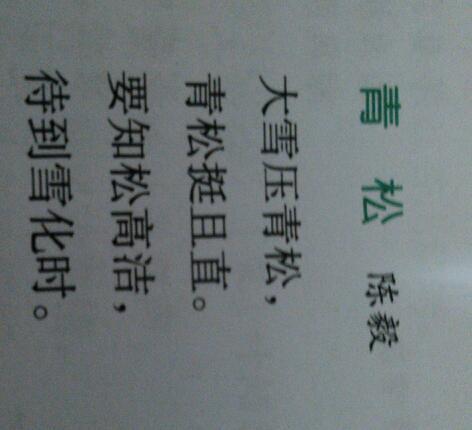 青松
陈毅
大雪压青松，
青松挺且直。
要知松高洁，
待到雪化时。